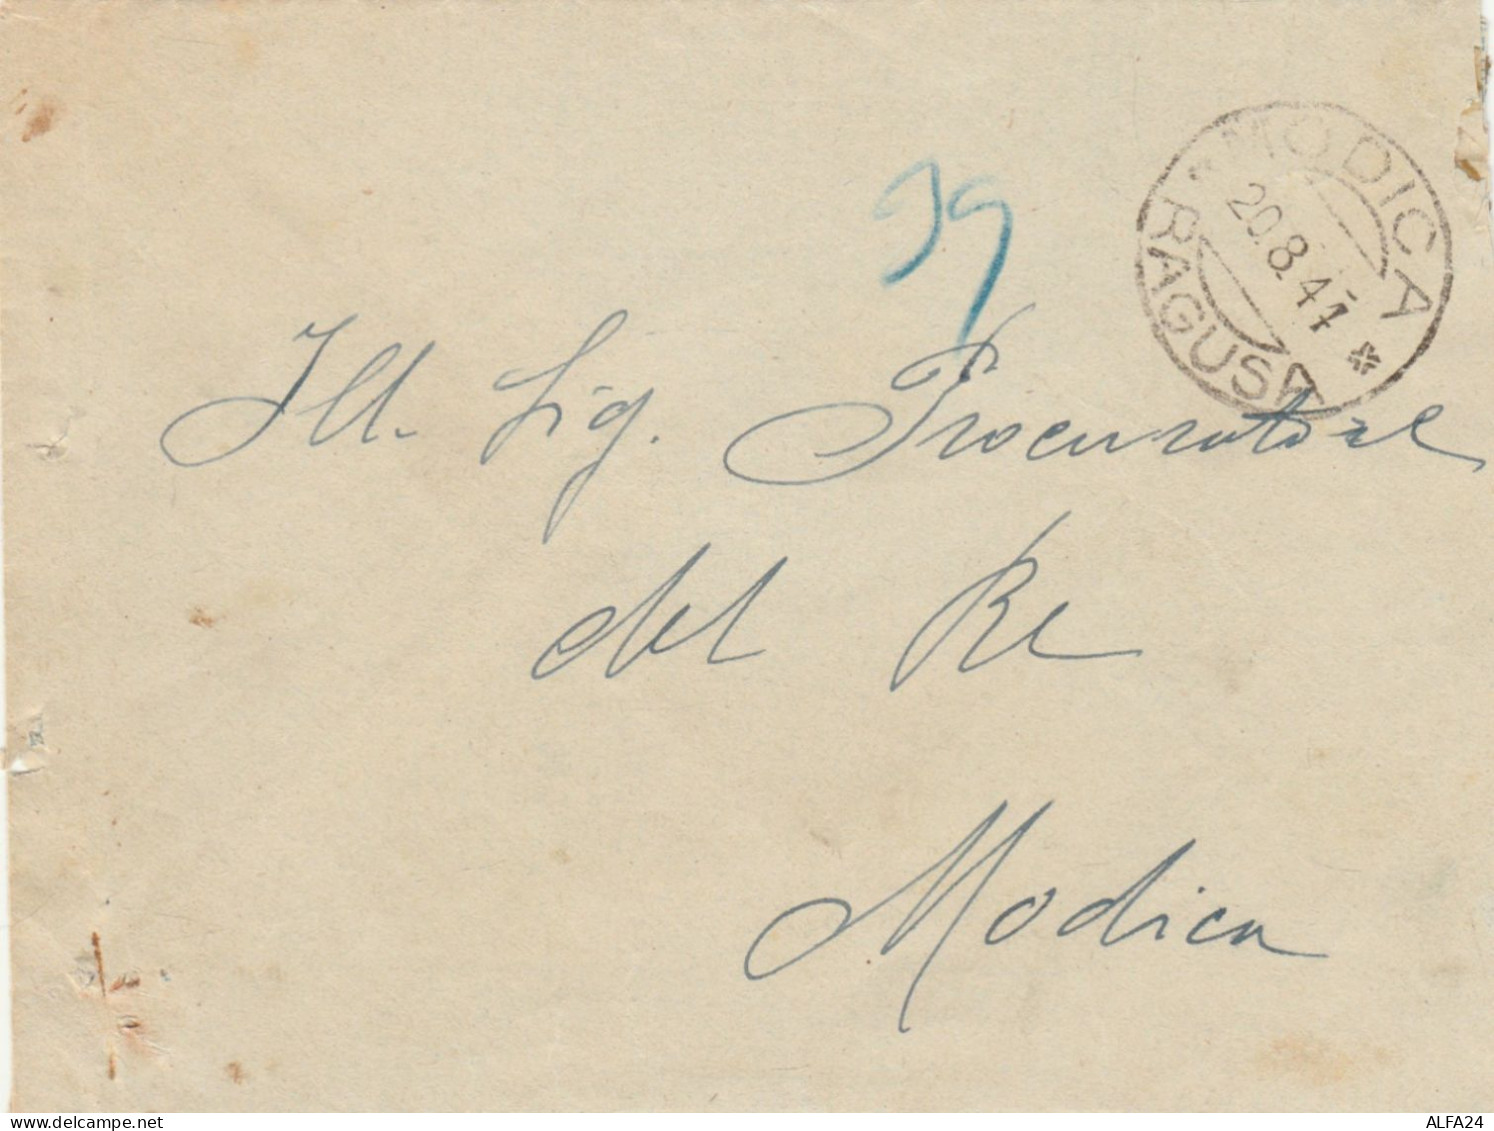 MODICA
RAGUSA
20.8.41
Ill. Sig. Procuratore
del Re
Modica
delcampe.net
ALFA24